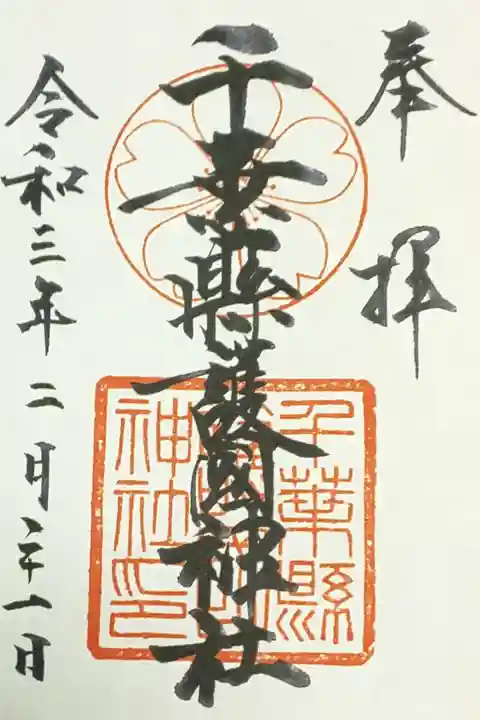 奉拝
千葉縣護國神社
令和三年二月二十一日
千葉縣
神社印